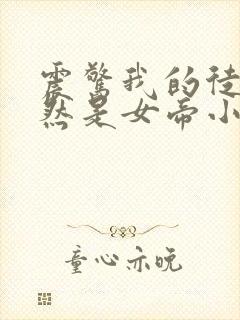 震惊我的徒
然是女帝小
童心亦晚